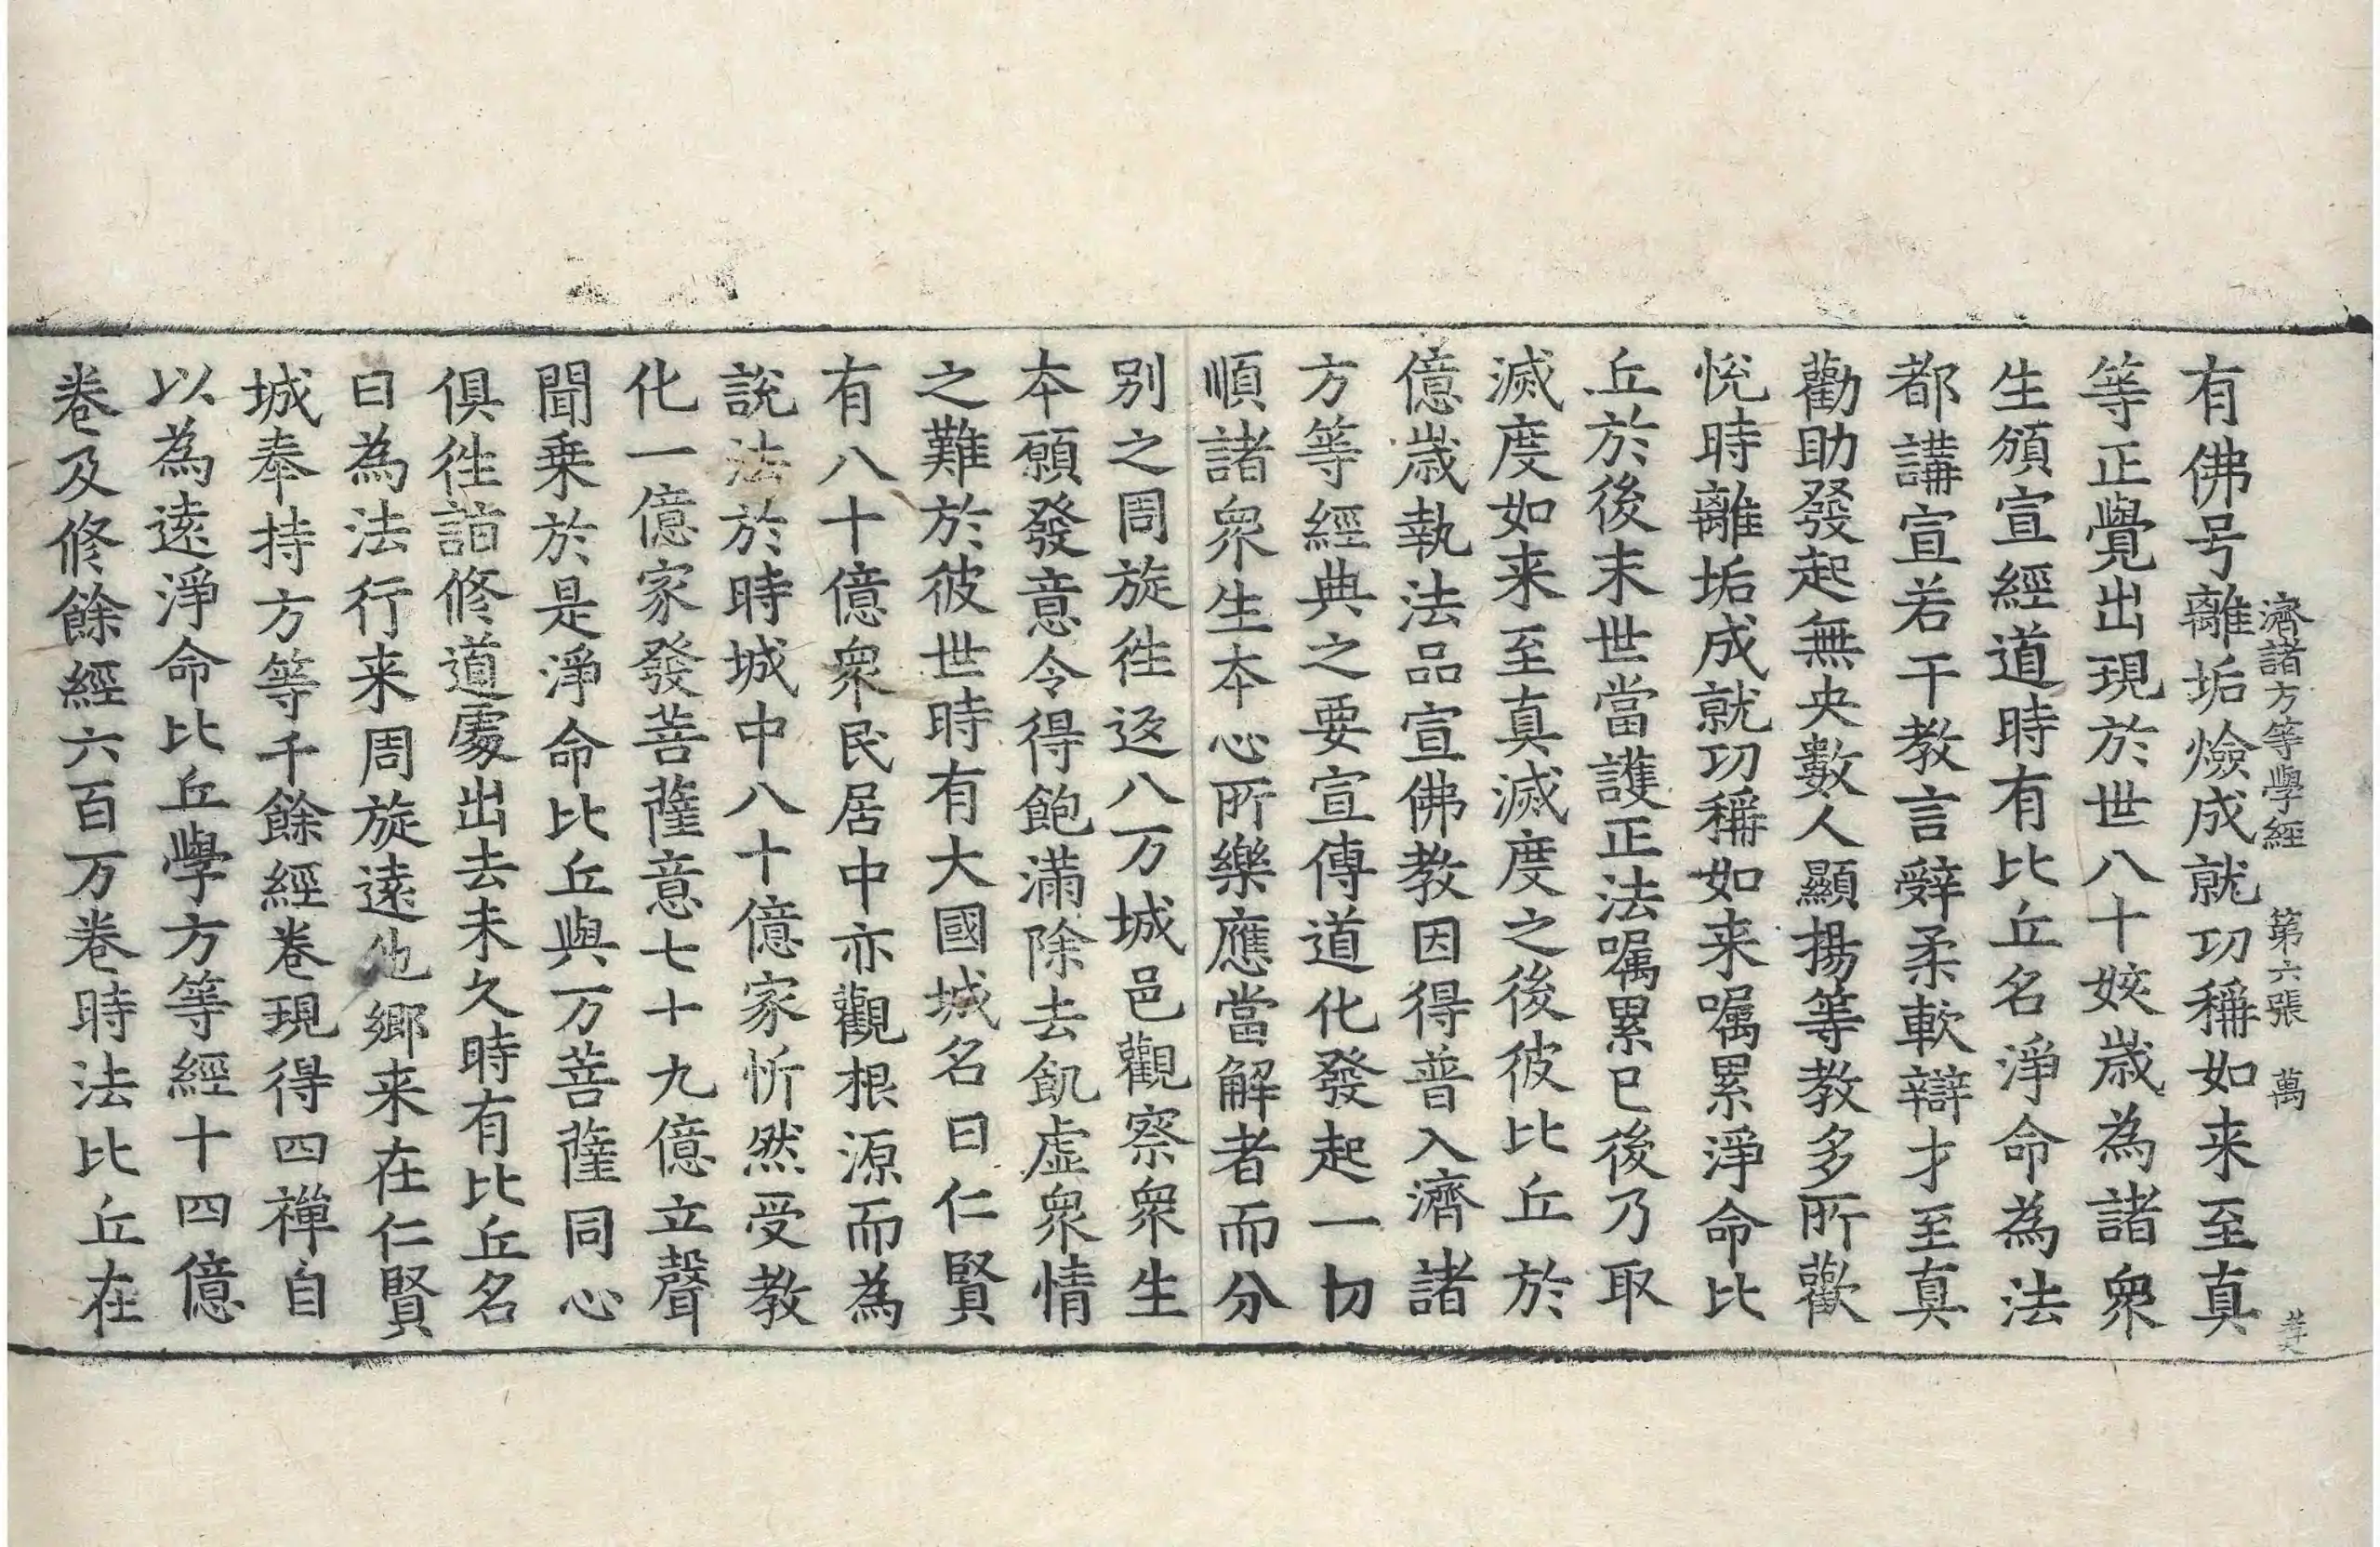 濟諸方等學經 第六張 萬
有佛号離垢燄成就功稱如来至真
等正覺出現於世八十姟歲為諸衆
生頒宣經道時有比丘名淨命為法
都講宣若干教言辤柔軟辯才至真
勸助發起無央數人顯揚等教多所歡
悅時離垢成就功稱如来嘱累淨命比
丘於後末世當護正法嘱累已後乃取
滅度如来至真滅度之後彼比丘於
億歲執法品宣佛教因得普入濟諸
方等經典之要宣傳道化發起一切
順諸衆生本心所樂應當解者而分
別之周旋徃返八万城邑觀察衆生
本願發意令得飽滿除去飢虛衆情
之難於彼世時有大國城名曰仁賢
有八十億衆民居中亦觀根源而為
說法於時城中八十億家忻然受教
化一億家發菩薩意七十九億立聲
聞乗於是淨命比丘與万菩薩同心
俱徃詣修道處出去未久時有比丘名
曰為法行来周旋遠他鄉来在仁賢
城奉持方等千餘經卷現得四禪自
以為遠淨命比丘學方等經十四億
卷及修餘經六百万卷時法比丘在